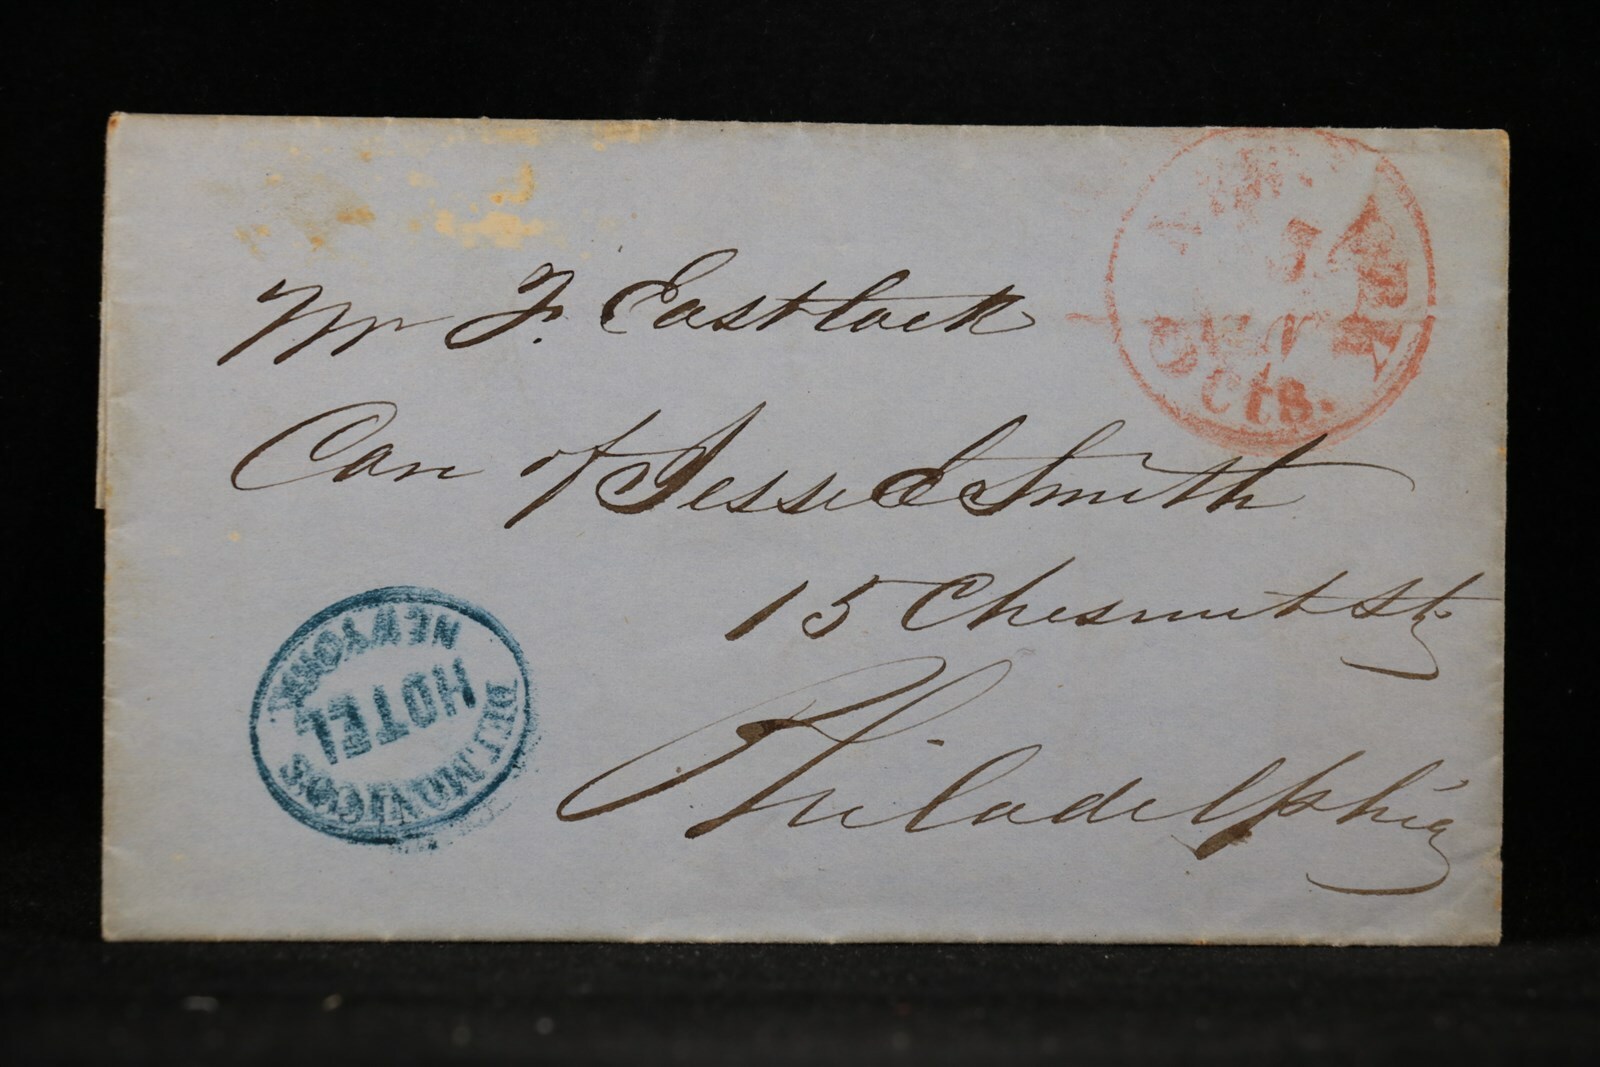 Mr F. Eastlack
Care of Jesse E Smith
15 Chesnut St
Philadelphia
NEW YORK
HOTEL
DELMONICO'S
5 cts.